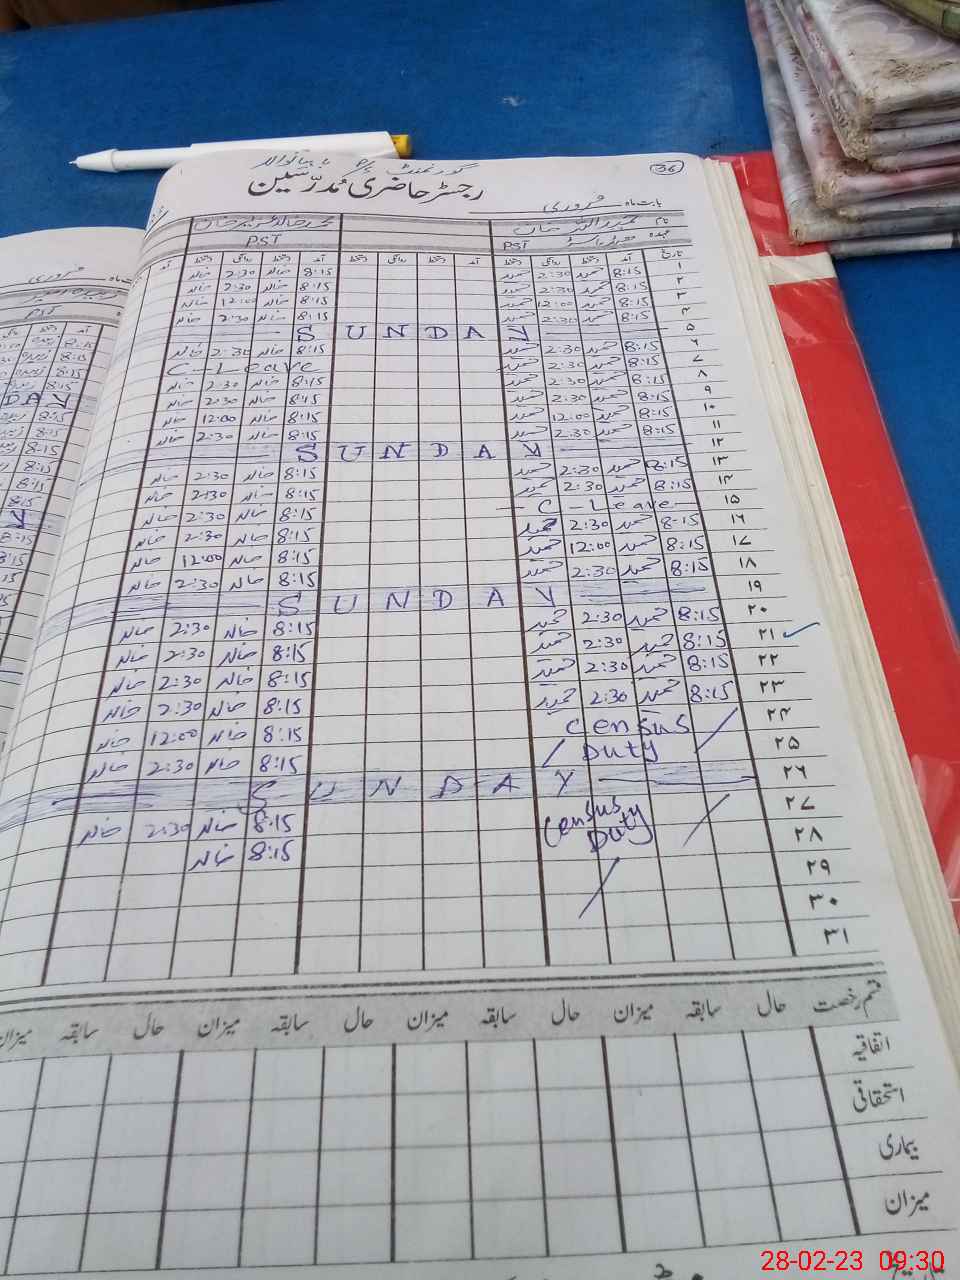 36
گورنمنٹ
رجسٹر حاضری مدرّسین
بابت ماہ فروری
نام حمیداللہ خان محمد خالد
عہدہ PST PST
تاریخ آمد دستخط روانگی دستخط آمد دستخط روانگی دستخط آمد دستخط روانگی دستخط
۱ 8:15 حمید 2:30 حمید 8:15 خالد 2:30 خالد
۲ 8:15 حمید 2:30 حمید 8:15 خالد 2:30 خالد
۳ 8:15 حمید 12:00 حمید 8:15 خالد 12:00 خالد
۴ 8:15 حمید 2:30 حمید 8:15 خالد 2:30 خالد
۵ SUNDAY
۶ 8:15 حمید 2:30 حمید 8:15 خالد 2:30 خالد
۷ 8:15 حمید 2:30 حمید C-Leave
۸ 8:15 حمید 2:30 حمید 8:15 خالد 2:30 خالد
۹ 8:15 حمید 2:30 حمید 8:15 خالد 2:30 خالد
۱۰ 8:15 حمید 12:00 حمید 8:15 خالد 12:00 خالد
۱۱ 8:15 حمید 2:30 حمید 8:15 خالد 2:30 خالد
۱۲ SUNDAY
۱۳ 8:15 حمید 2:30 حمید 8:15 خالد 2:30 خالد
۱۴ 8:15 حمید 2:30 حمید 8:15 خالد 2:30 خالد
۱۵ C-Leave 8:15 خالد 2:30 خالد
۱۶ 8:15 حمید 2:30 حمید 8:15 خالد 2:30 خالد
۱۷ 8:15 حمید 12:00 حمید 8:15 خالد 12:00 خالد
۱۸ 8:15 حمید 2:30 حمید 8:15 خالد 2:30 خالد
۱۹ SUNDAY
۲۰ 8:15 حمید 2:30 حمید 8:15 خالد 2:30 خالد
۲۱ 8:15 حمید 2:30 حمید 8:15 خالد 2:30 خالد
۲۲ 8:15 حمید 2:30 حمید 8:15 خالد 2:30 خالد
۲۳ 8:15 حمید 2:30 حمید 8:15 خالد 2:30 خالد
۲۴ Census 8:15 خالد 12:00 خالد
۲۵ Duty 8:15 خالد 2:30 خالد
۲۶ SUNDAY
۲۷ Census 8:15 خالد 2:30 خالد
۲۸ Duty 8:15 خالد
۲۹
۳۰
۳۱
قسم رخصت حال سابقہ میزان حال سابقہ میزان حال سابقہ میزان حال سابقہ میزان
اتفاقیہ
استحقاقی
بیماری
میزان
28-02-23 09:30